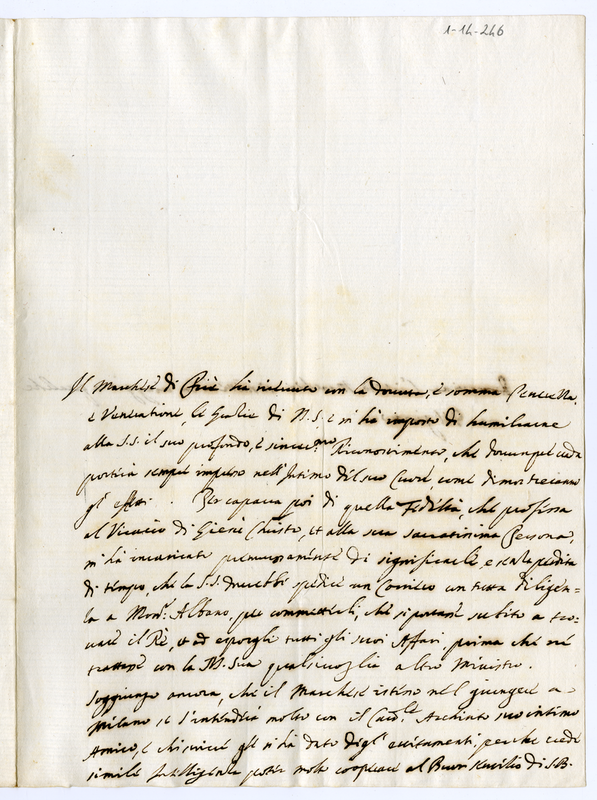 1-14-246
Il Marchese di Priè ha ricevuto con la dovuta, è somma
è Veneratione, le Gratie di N.S., è mi hà imposto di humiliarne
alla S.S. il suo profondo, è sincer.mo Riconoscimento, che dovunque
porterà sempre impresso nell'Intimo del suo Cuore, come dimostreranno
gl'effetti. Per caparra poi di quella Fedeltà, che professa
al Vicario di Giesù Christo, et alla sua Sacratissima Persona,
mi hà incaricato premurosamente di significarle, e senza perdita
di tempo, che la S.S. dovrebbe spedire un Corriero con tutta diligen=
za a Mons.r Albano, per commetterli, che si portasse subito a tro=
vare il Rè, et ad esporgli tutti gli suoi Affari, prima che ne
trattasse con la M. Sua qualsivoglia altro Ministro.
Soggiungo ancora, che il Marchese istesso nel giungere a
Milano se l'intenderà molto con il Archinto suo intimo
Amico, è gli hà dato degl'eccitamenti, perche crede
simile Intelligenza poter molto cooperare al Buon Servitio di S.B.